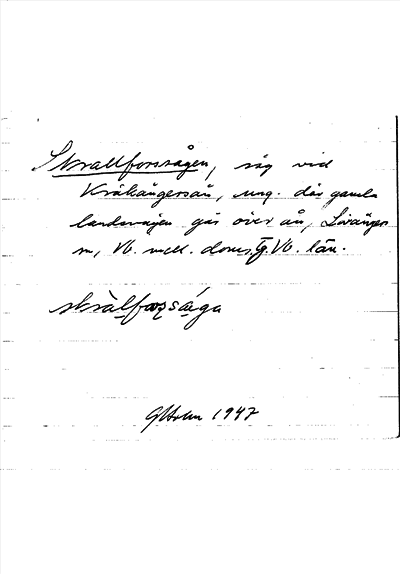 Skrallforssågen, såg vid
Kråkångersån, ung. där gamla
landsvägen går över ån, Lövånger
n, Vb. mell. doms. G. Vb. län.
skràlforssága
GHolm 1947